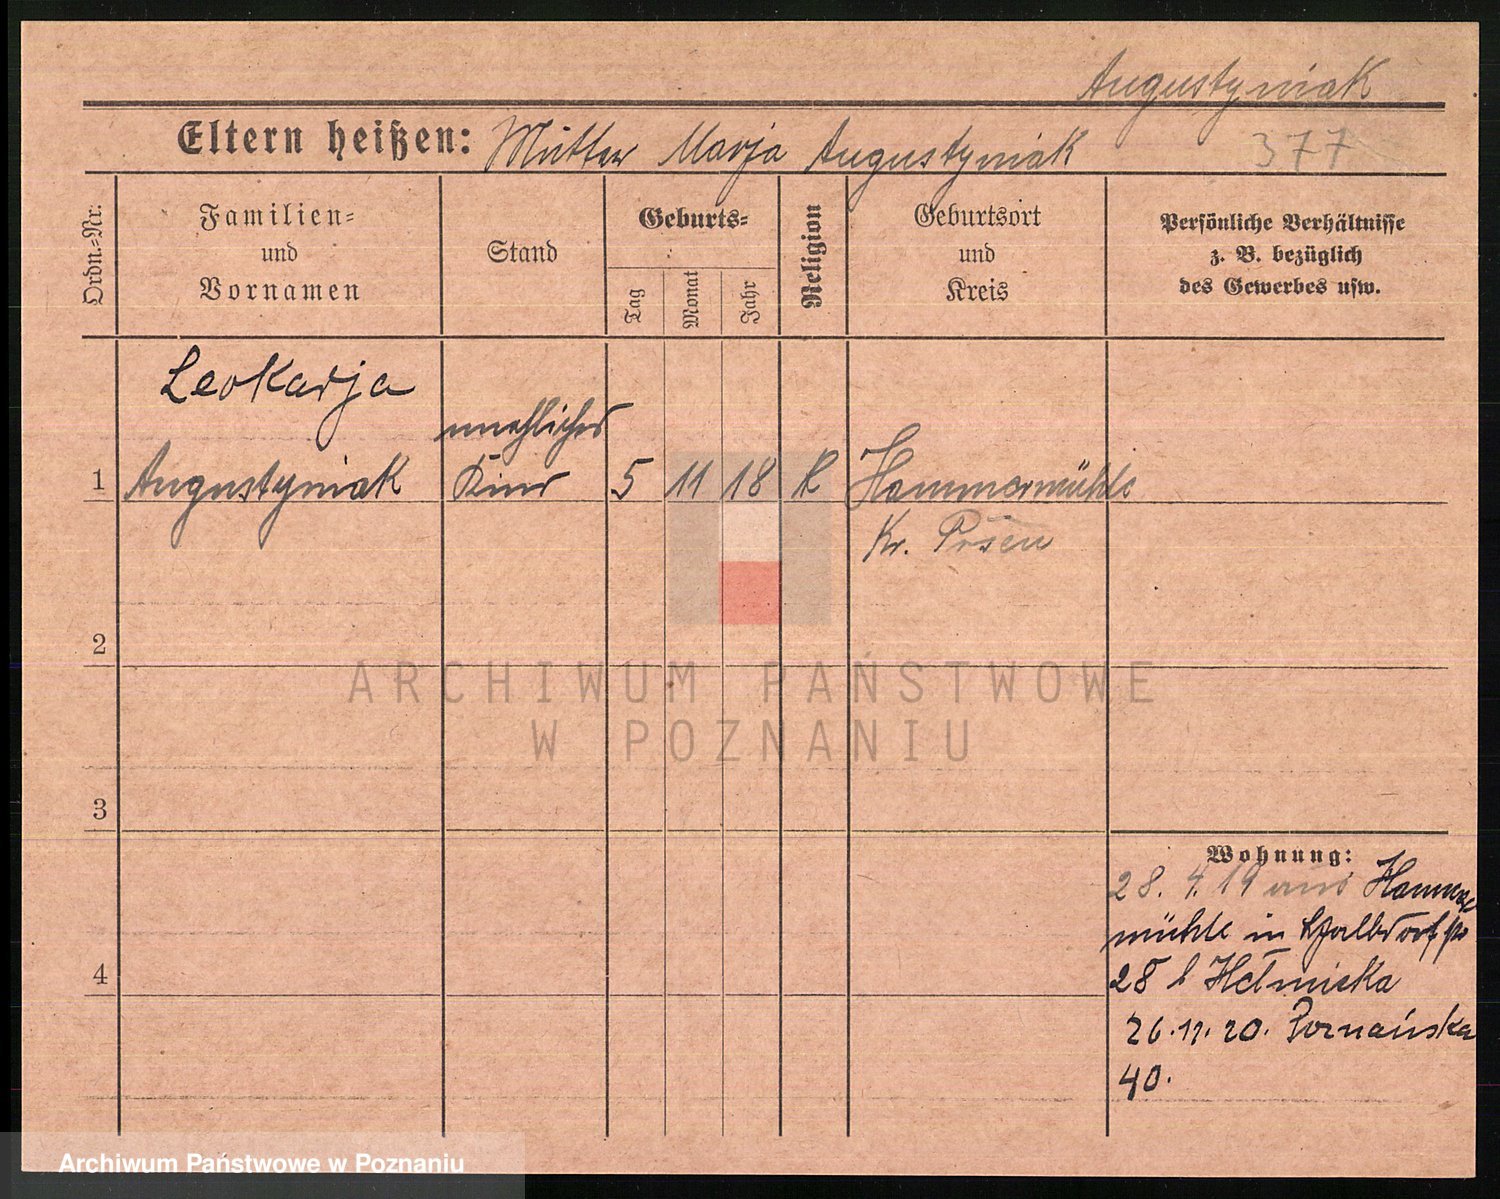 Augustyniak
Eltern heißen: Mutter Marja Augustyniak 377
Ordn.=Nr.
Familien=
und
Vornamen
Stand
Geburts=
Tag
Monat
Jahr
Religion
Geburtsort
und
Kreis
Persönliche Verhältnisse
z. B. bezüglich
des Gewerbes usw.
Leokadja
unehliches
1 Augustyniak Kind 5 11 18 K Hammermühle
Kr.
2
ARCHIWUM PAŃSTWOWE
W POZNANIU
3
Wohnung:
28. 4. 19 aus Hammer
mühle in
4
28 b
26.11.20. Poznańska
40.
Archiwum Państwowe w Poznaniu